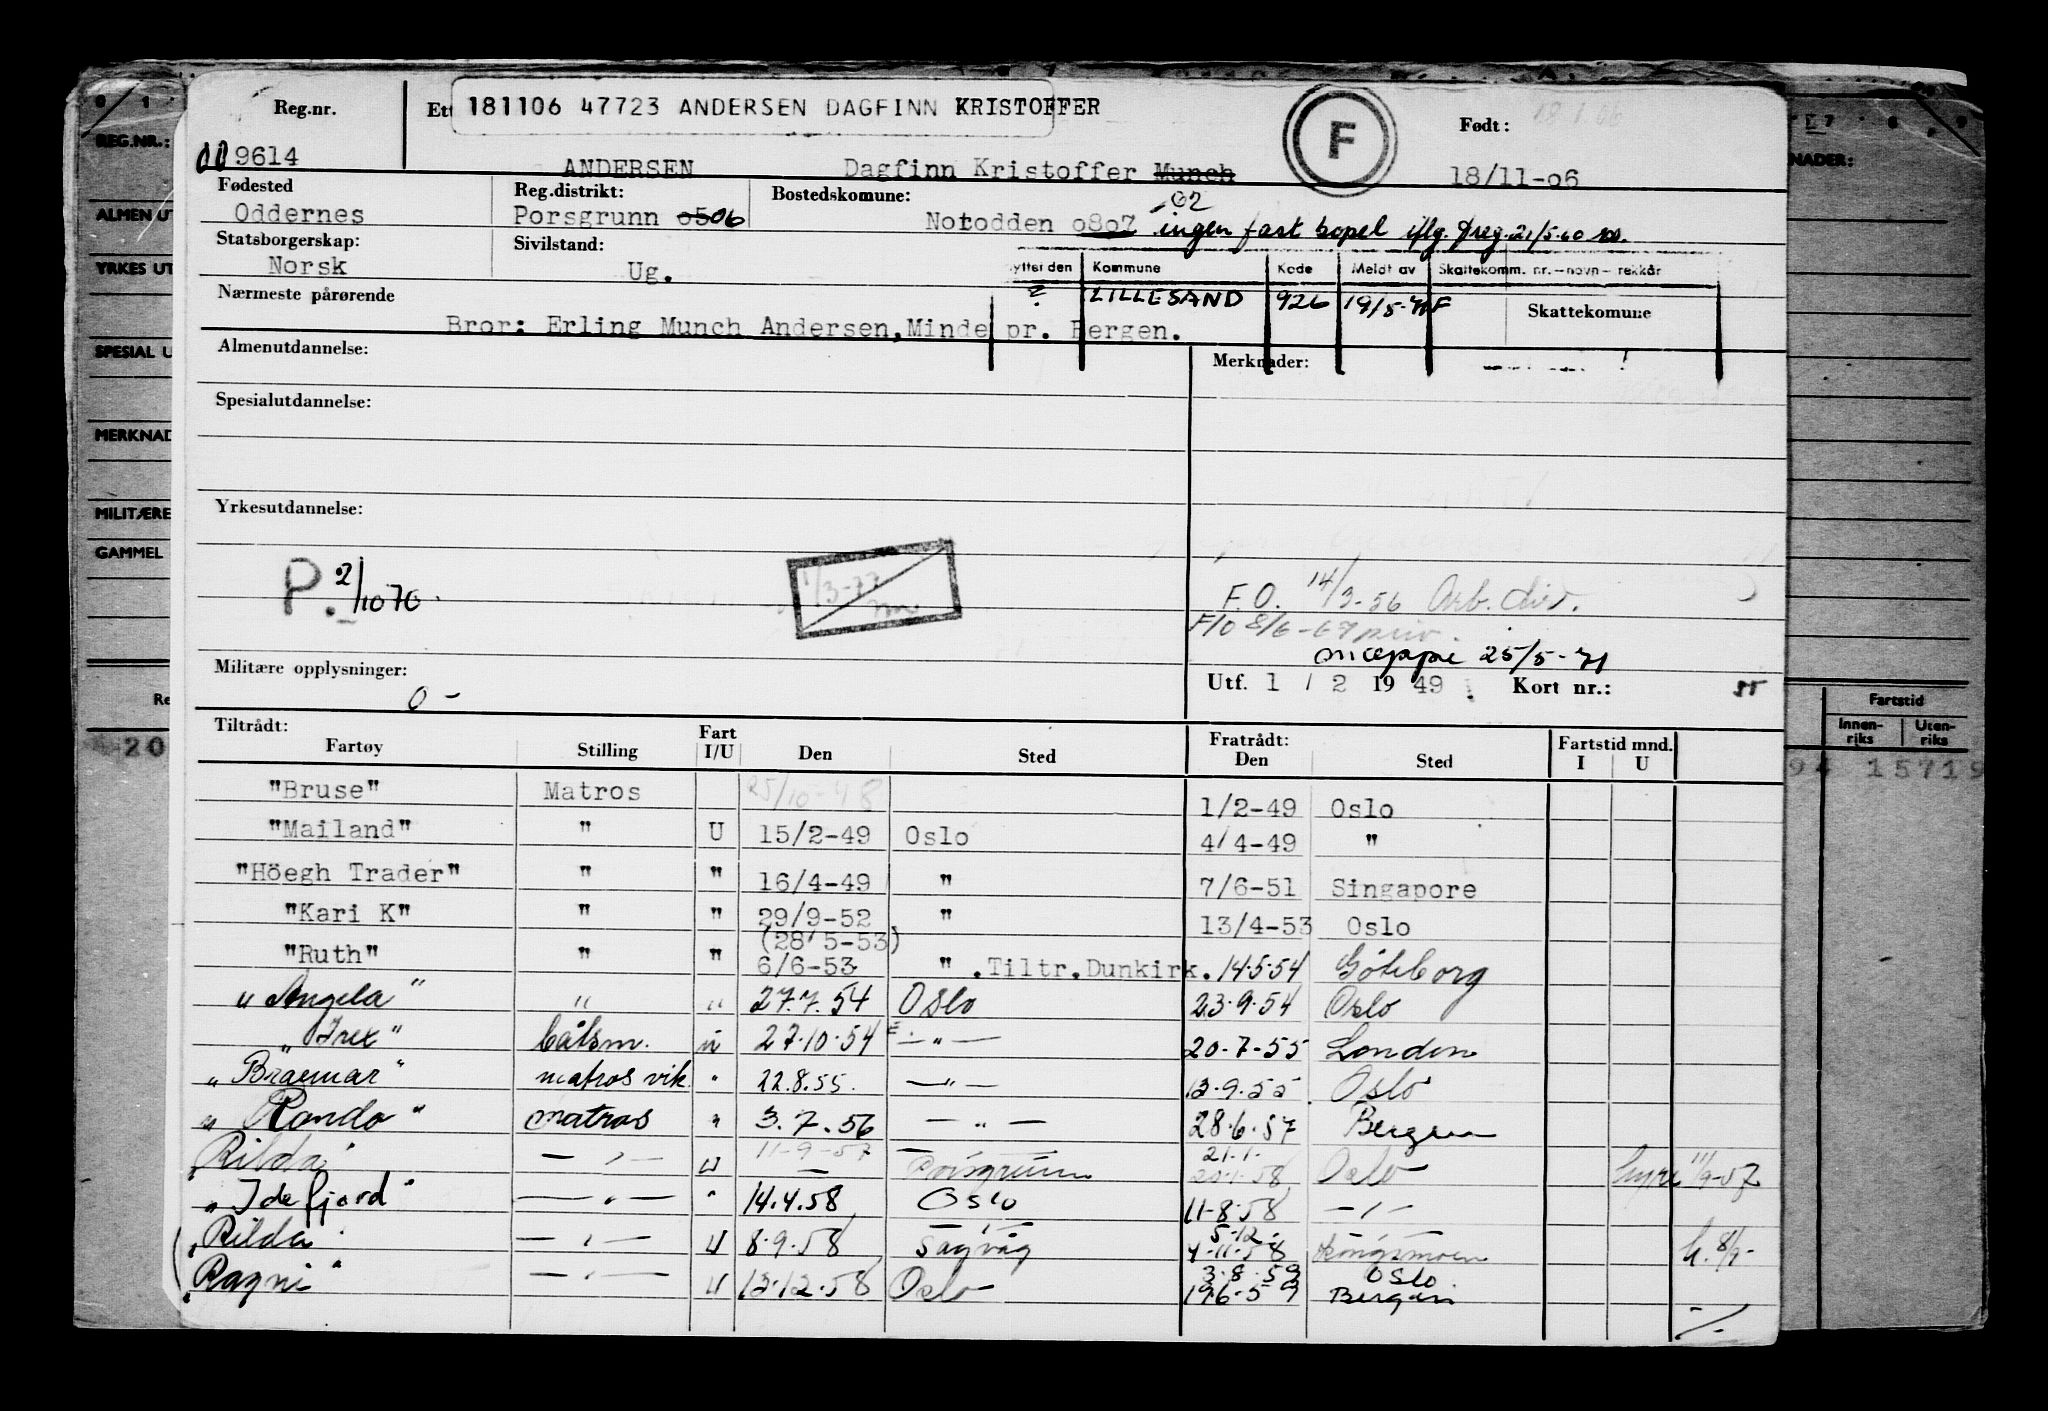 Reg.nr. Ett 181106 47723 ANDERSEN DAGFINN KRISTOFFER F Født:
009614 ANDERSEN Dagfinn Kristoffer Munch 18/11-06
Fødested Reg.distrikt: Bostedskomune: 02
Oddernes Porsgrunn 0506 Notodden 0807 ingen fast bopel iflg. freg. 21/5-60
Statsborgerskap: Sivilstand:
Norsk Ug.
yttet den Kommune Kode Meldt av Skattekomm. nr. – navn – rekkår
? LILLESAND 926 19/5-71 F
Nærmeste pårørende Skattekomune
Bror: Erling Munch Andersen, Minde pr. Bergen.
Almenutdannelse: Merknader:
Spesialutdannelse:
Yrkesutdannelse:
P. 2/10 70. 1/3-77
F.O. 14/3-56 Arb. dir.
F/O 8/6-67 priv.
25/5-71
Militære opplysninger: 0 –
Utf. 1 / 2 19 49 Kort nr.:
Tiltrådt: Fart Fratrådt: Fartstid mnd.
Fartøy Stilling I/U Den Sted Den Sted I U
"Bruse" Matros 25/10-48 1/2-49 Oslo
"Mailand" " U 15/2-49 Oslo 4/4-49 "
"Höegh Trader" " " 16/4-49 " 7/6-51 Singapore
"Kari K" " " 29/9-52 " 13/4-53 Oslo
(28/5-53)
"Ruth" " " 6/6-53 " .Tiltr.Dunkirk. 14.5.54 Göteborg
"Angela" " " 27.7.54 Oslo 23.9.54 Oslo
"Irex" båtsm. u 27.10.54 — " — 20.7-55 London
"Braemar" matros vik. " 22.8.55. — " — 12.9.55 Oslo
"Rondo" matros " 3.7.56 — " — 28.6.57 Bergen
"Rilda" — " — U 11-9-57 Porsgrunn 21.1. 20.1.58 Oslo hyre 11/9-57
"Idefjord" — " — " 14.4.58 Oslo 11-8-58 — " —
"Rilda" — " — U 8.9.58 Sagvåg 5-12. 4-11-58 Kongsmoen h. 8/9-
"Ragni" — " — U 12.12.58 Oslo 3.8.59 Oslo
19.6-59 Bergen
REG.NR.:
ALMEN UT
YRKES UT
SPESIAL U
MERKNAD
MILITÆRE
GAMMEL
Re
20
NADER:
Fartstid
Innen-riks Uten-riks
94 15719